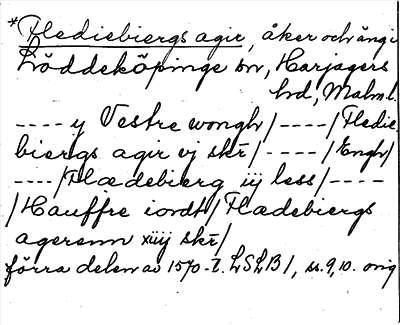 *Flediebiergs agir, åker och äng i
Löddeköpinge sn, Harjagers
hd, Malm.l.
---- y Vestre wongh/----/Fledie-
biergs agir vj skr/----/Engh/
----/Flædebierg iij less/----
/Hauffre iordt/Flædebiergs
agerenn xiiij skr/
förra delen av 1570-t. LSLB1, ss. 9, 10. orig